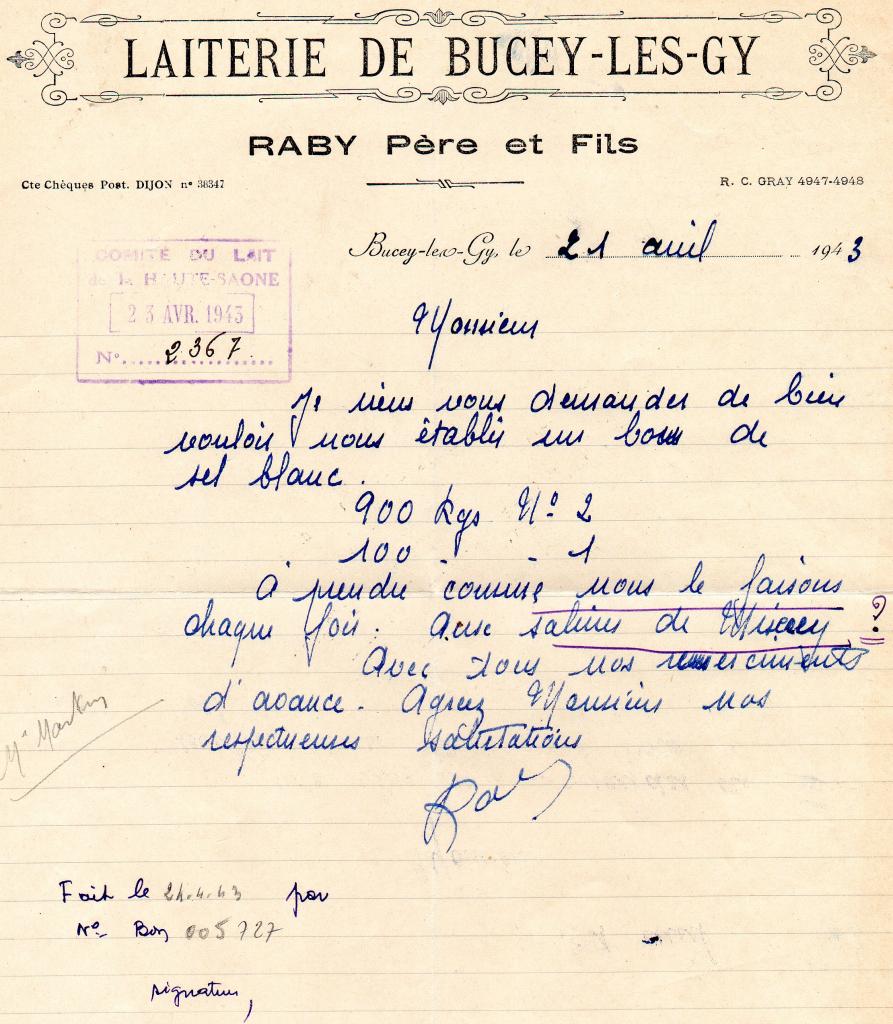 LAITERIE DE BUCEY-LES-GY
RABY Père et Fils
Cte Chèques Post. DIJON n° 38347
R. C. GRAY 4947-4948
Bucey-les-Gy, le 21 avril 1943
COMITÉ DU LAIT
de la HAUTE-SAONE
23 AVR. 1943
N° 2367
Monsieur
Je viens vous demander de bien
vouloir nous établir un bon de
sel blanc.
900 kgs N° 2
100 - - 1
A prendre comme nous le faisons
chaque fois. Aux salines de Miserey ?
Avec tous nos remerciements
d'avance. Agréez Monsieur nos
respectueuses salutations
Mr Martin
Fait le 24.4.43 par
N° Bon 005727
signature,